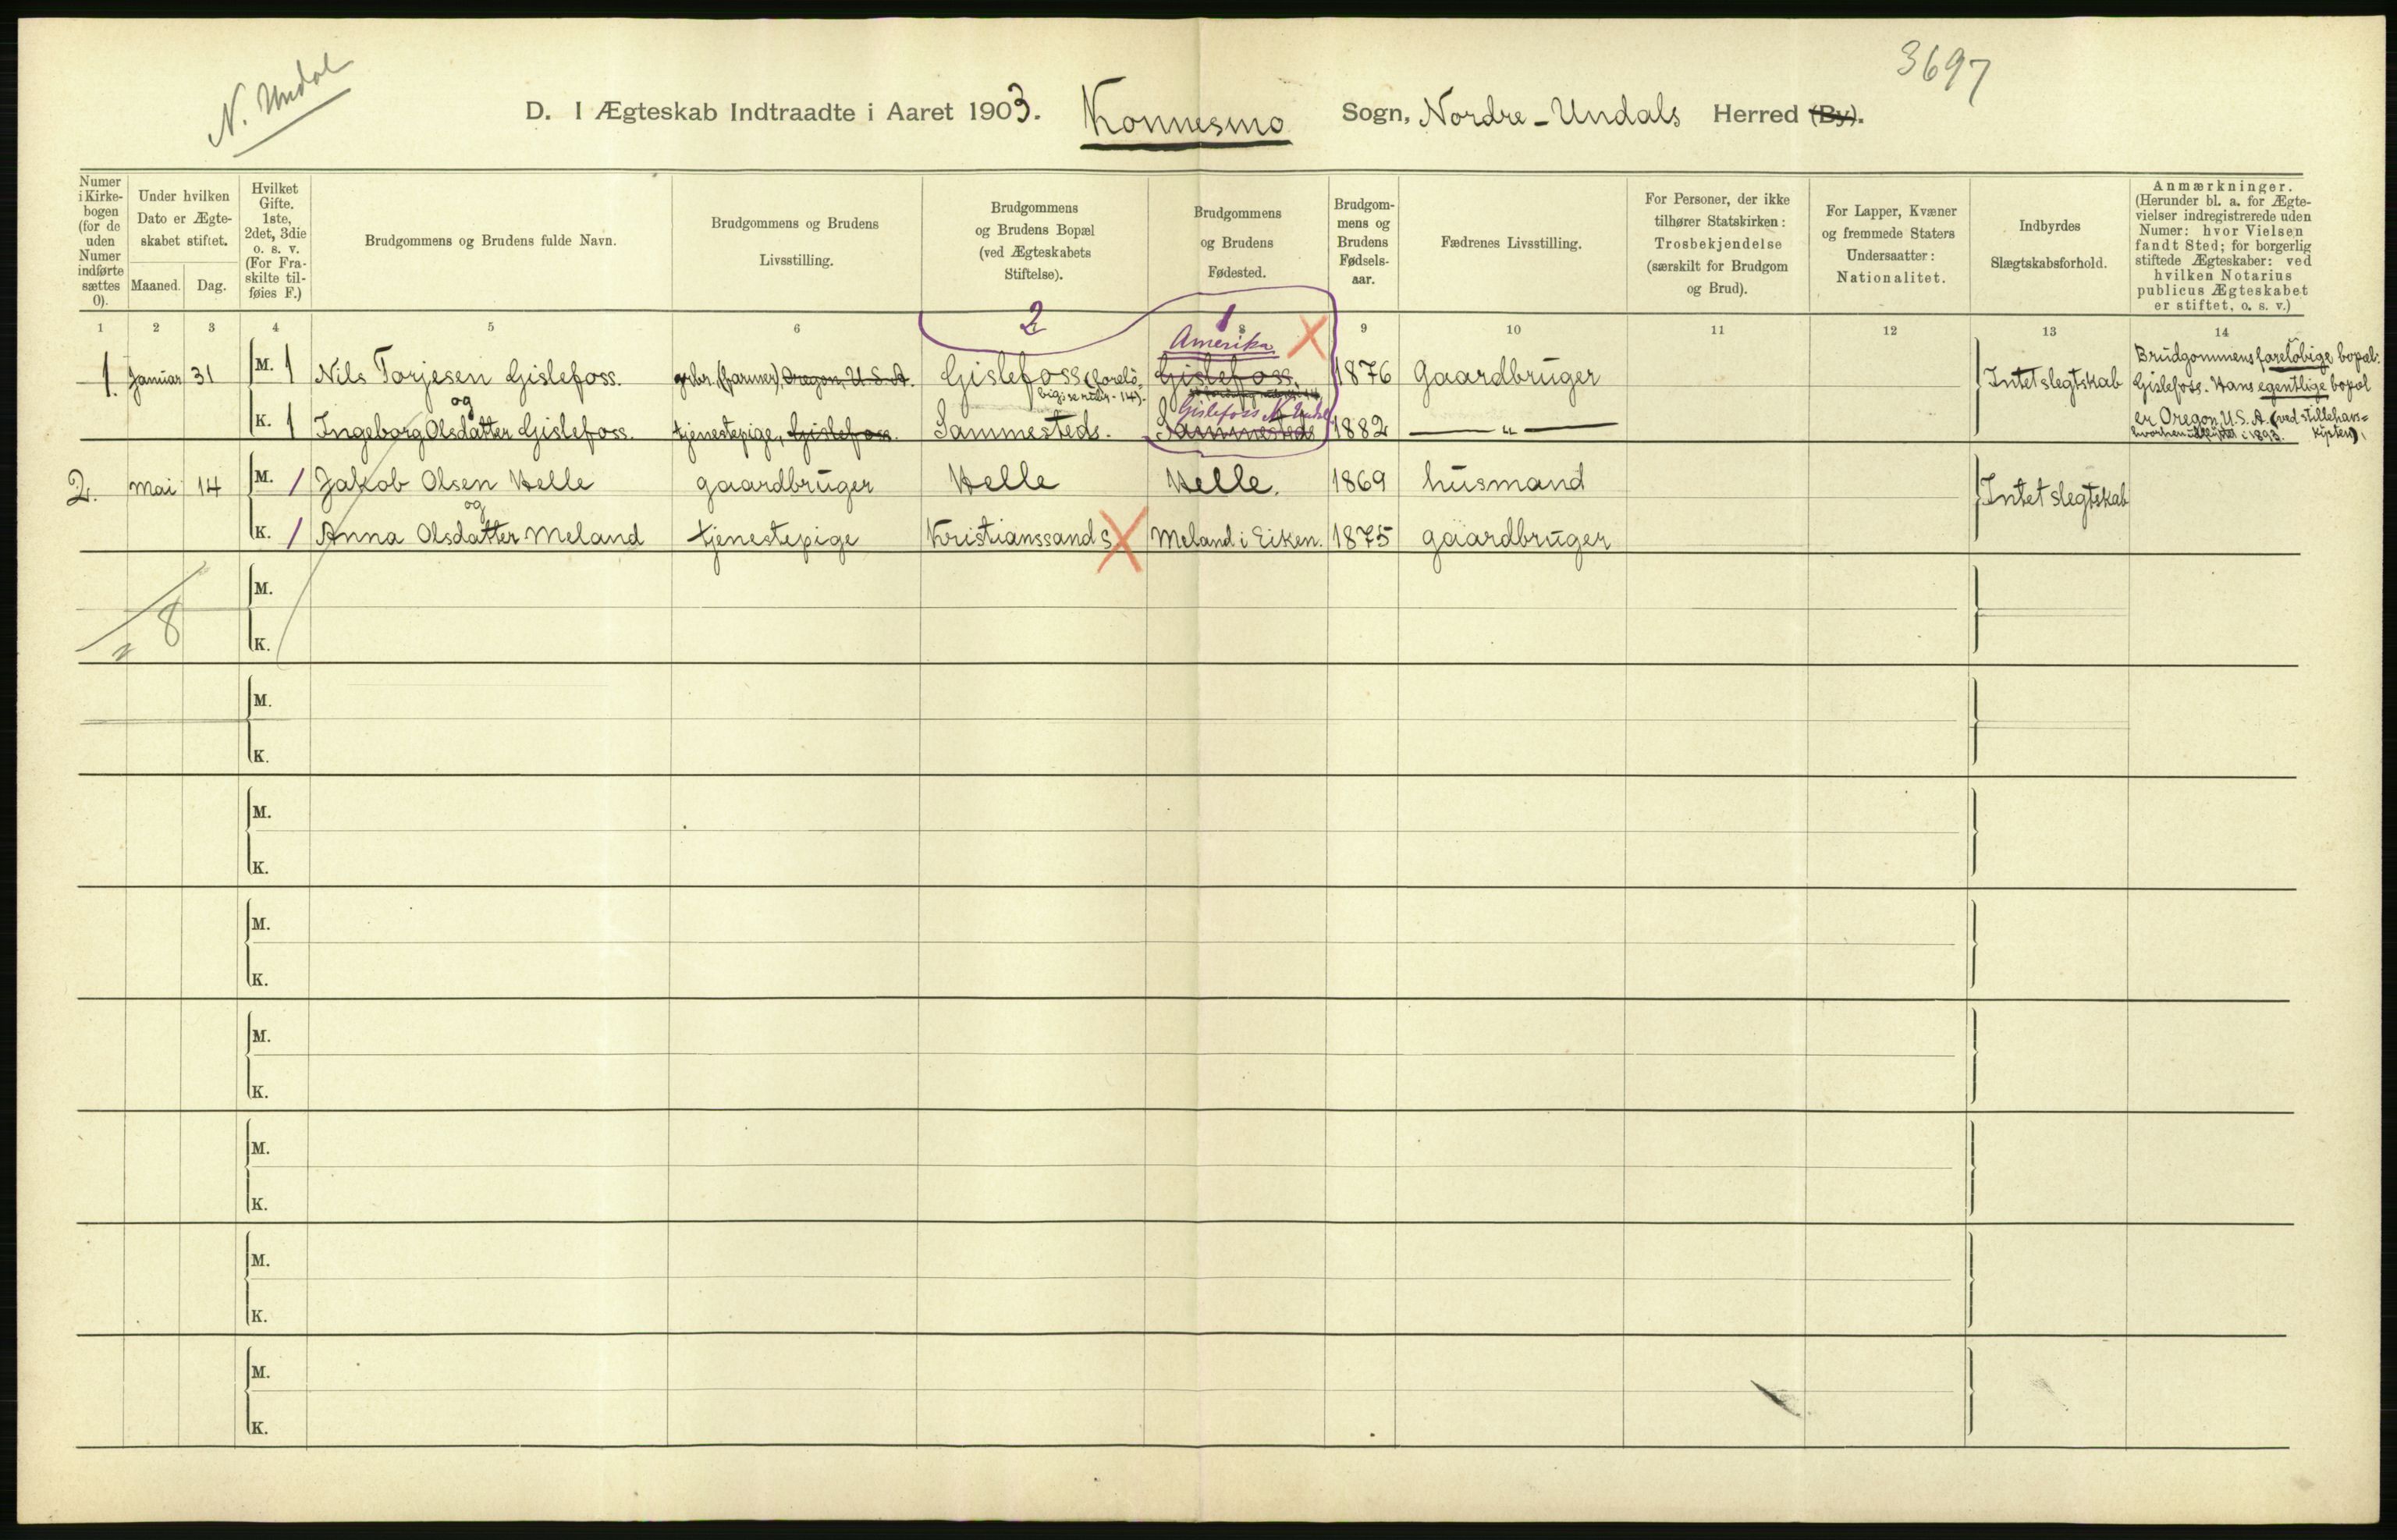 N. Undal
3697
D. I Ægteskab Indtraadte i Aaret 1903. Konnesmo Sogn, Nordre-Undals Herred (By).
Numer i Kirkebogen (for de uden Numer indførte sættes 0).
Under hvilken Dato er Ægteskabet stiftet.
Maaned. Dag.
Hvilket Gifte. 1ste, 2det, 3die o. s. v. (For Fraskilte tilføies F.)
Brudgommens og Brudens fulde Navn.
Brudgommens og Brudens Livsstilling.
Brudgommens og Brudens Bopæl (ved Ægteskabets Stiftelse).
Brudgommens og Brudens Fødested.
Brudgommens og Brudens Fødselsaar.
Fædrenes Livsstilling.
For Personer, der ikke tilhører Statskirken: Trosbekjendelse (særskilt for Brudgom og Brud).
For Lapper, Kvæner og fremmede Staters Undersaatter: Nationalitet.
Indbyrdes Slægtskabsforhold.
Anmærkninger. (Herunder bl. a. for Ægtevielser indregistrerede uden Numer: hvor Vielsen fandt Sted; for borgerlig stiftede Ægteskaber: ved hvilken Notarius publicus Ægteskabet er stiftet, o. s. v.)
2 1
1 2 3 4 5 6 8 9 10 11 12 13 14
Amerika
1. Januar 31 M. 1 Nils Torjesen Gislefoss. grbr. (farmer), Oregon, U.S.A. Gislefoss (forelöbig; se rubr. 14). Gislefoss, 1876 Gaardbruger Intet slegtskab
og
Gislefoss N. Undal
K. 1 Ingeborg Olsdatter Gislefoss. tjenestepige, Gislefoss. Sammesteds. Sammesteds 1882 — „ —
Brudgommens foreløbige bopæl:
Gislefoss. Hans egentlige bopæl
er Oregon, U.S.A. (ved stillehavs-
kysten),
hvorhen udflyttet i 1893.
2. Mai 14 M. 1 Jakob Olsen Helle gaardbruger Helle Helle. 1869 husmand Intet slegtskab
og
K. 1 Anna Olsdatter Meland tjenestepige Kristianssand S Meland i Eiken. 1875 gaardbruger
M.
8
K.
M.
K.
M.
K.
M.
K.
M.
K.
M.
K.
M.
K.
M.
K.